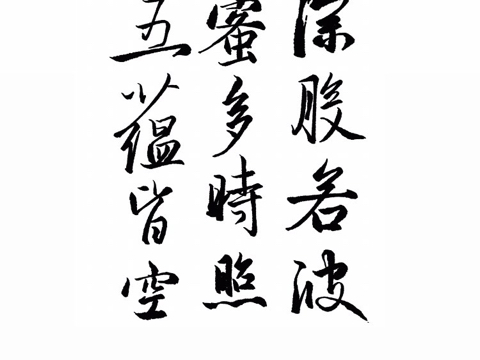 深般若波
蜜多時照
五蘊皆空